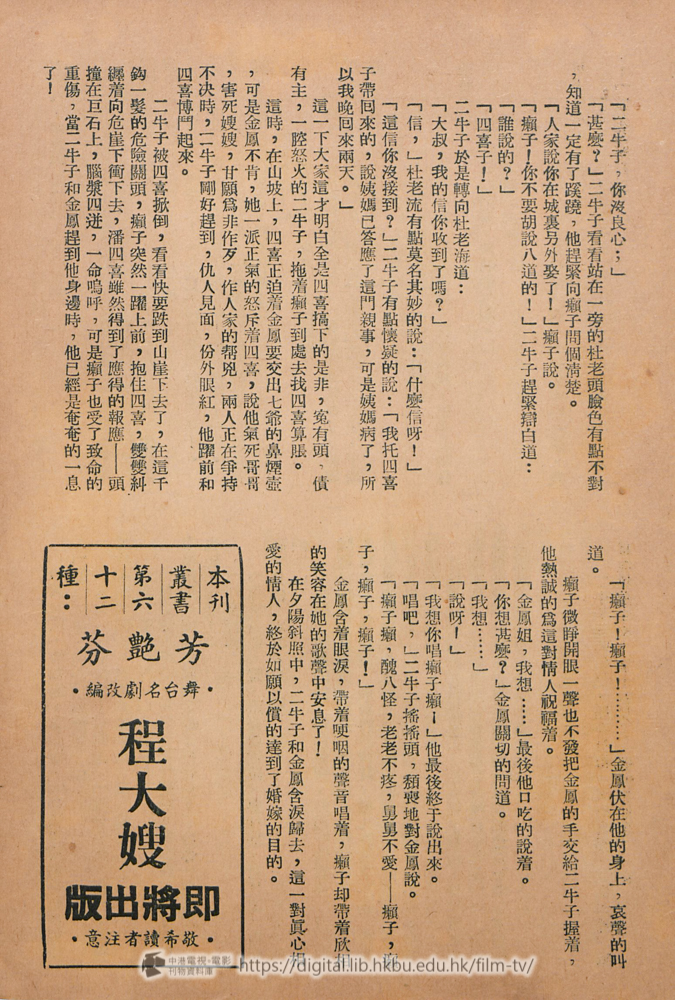 「二牛子，你沒良心；」
「甚麼？」二牛子看看站在一旁的杜老頭臉色有點不對
，知道一定有了蹊蹺，他趕緊向癩子問個清楚。
「人家說你在城裏另外娶了！」癩子說。
「癩子！你不要胡說八道的！」二牛子趕緊辯白道：
「誰說的？」
「四喜子！」
二牛子於是轉向杜老海道：
「大叔，我的信你收到了嗎？」
「信，」杜老流有點莫名其妙的說：「什麼信呀！」
「這信你沒接到？」二牛子有點懷疑的說：「我托四喜
子帶回來的，說姨媽已答應了這門親事，可是姨媽病了，所
以我晚回來兩天。」
這一下大家這才明白全是四喜搞下的是非，寃有頭，債
有主，一腔怒火的二牛子，拖着癩子到處去找四喜算賬。
這時，在山坡上，四喜正迫着金鳳要交出七爺的鼻煙壺
，可是金鳳不肯，她一派正氣的怒斥着四喜，說他氣死哥哥
，害死嫂嫂，甘願爲非作歹，作人家的幫兇，兩人正在爭持
不決時，二牛子剛好趕到，仇人見面，份外眼紅，他躍前和
四喜博鬥起來。
二牛子被四喜掀倒，看看快要跌到山崖下去了，在這千
鈎一髮的危險關頭，癩子突然一躍上前，抱住四喜，雙雙糾
纏着向危崖下衝下去，潘四喜雖然得到了應得的報應——頭
撞在巨石上，腦漿四迸，一命嗚呼，可是癩子也受了致命的
重傷，當二牛子和金鳳趕到他身邊時，他已經是奄奄的一息
了！
「癩子！癩子！………」金鳳伏在他的身上，哀聲的叫
道。
癩子微睜開眼一聲也不發把金鳳的手交給二牛子握着，
他熱誠的爲這對情人祝福着。
「金鳳姐，我想……」最後他口吃的說着。
「你想甚麼？」金鳳關切的問道。
「我想……」
「說呀！」
「我想你唱癩子癩！」他最後終于說出來。
「唱吧，」二牛子搖搖頭，頹喪地對金鳳說。
「癩子癩，醜八怪，老老不疼，舅舅不愛——癩子，
子，癩子，癩子！」
金鳳含着眼淚，帶着哽咽的聲音唱着，癩子却帶着欣
的笑容在她的歌聲中安息了！
在夕陽斜照中，二牛子和金鳳含淚歸去，這一對眞心
愛的情人，終於如願以償的達到了婚嫁的目的。
本刊
叢書
第六
十二
種：
芳艷芬
·舞台名劇改編·
程大嫂
即將出版
·敬希讀者注意·
中港電視·電影
刊物資料庫
https://digital.lib.hkbu.edu.hk/film-tv/